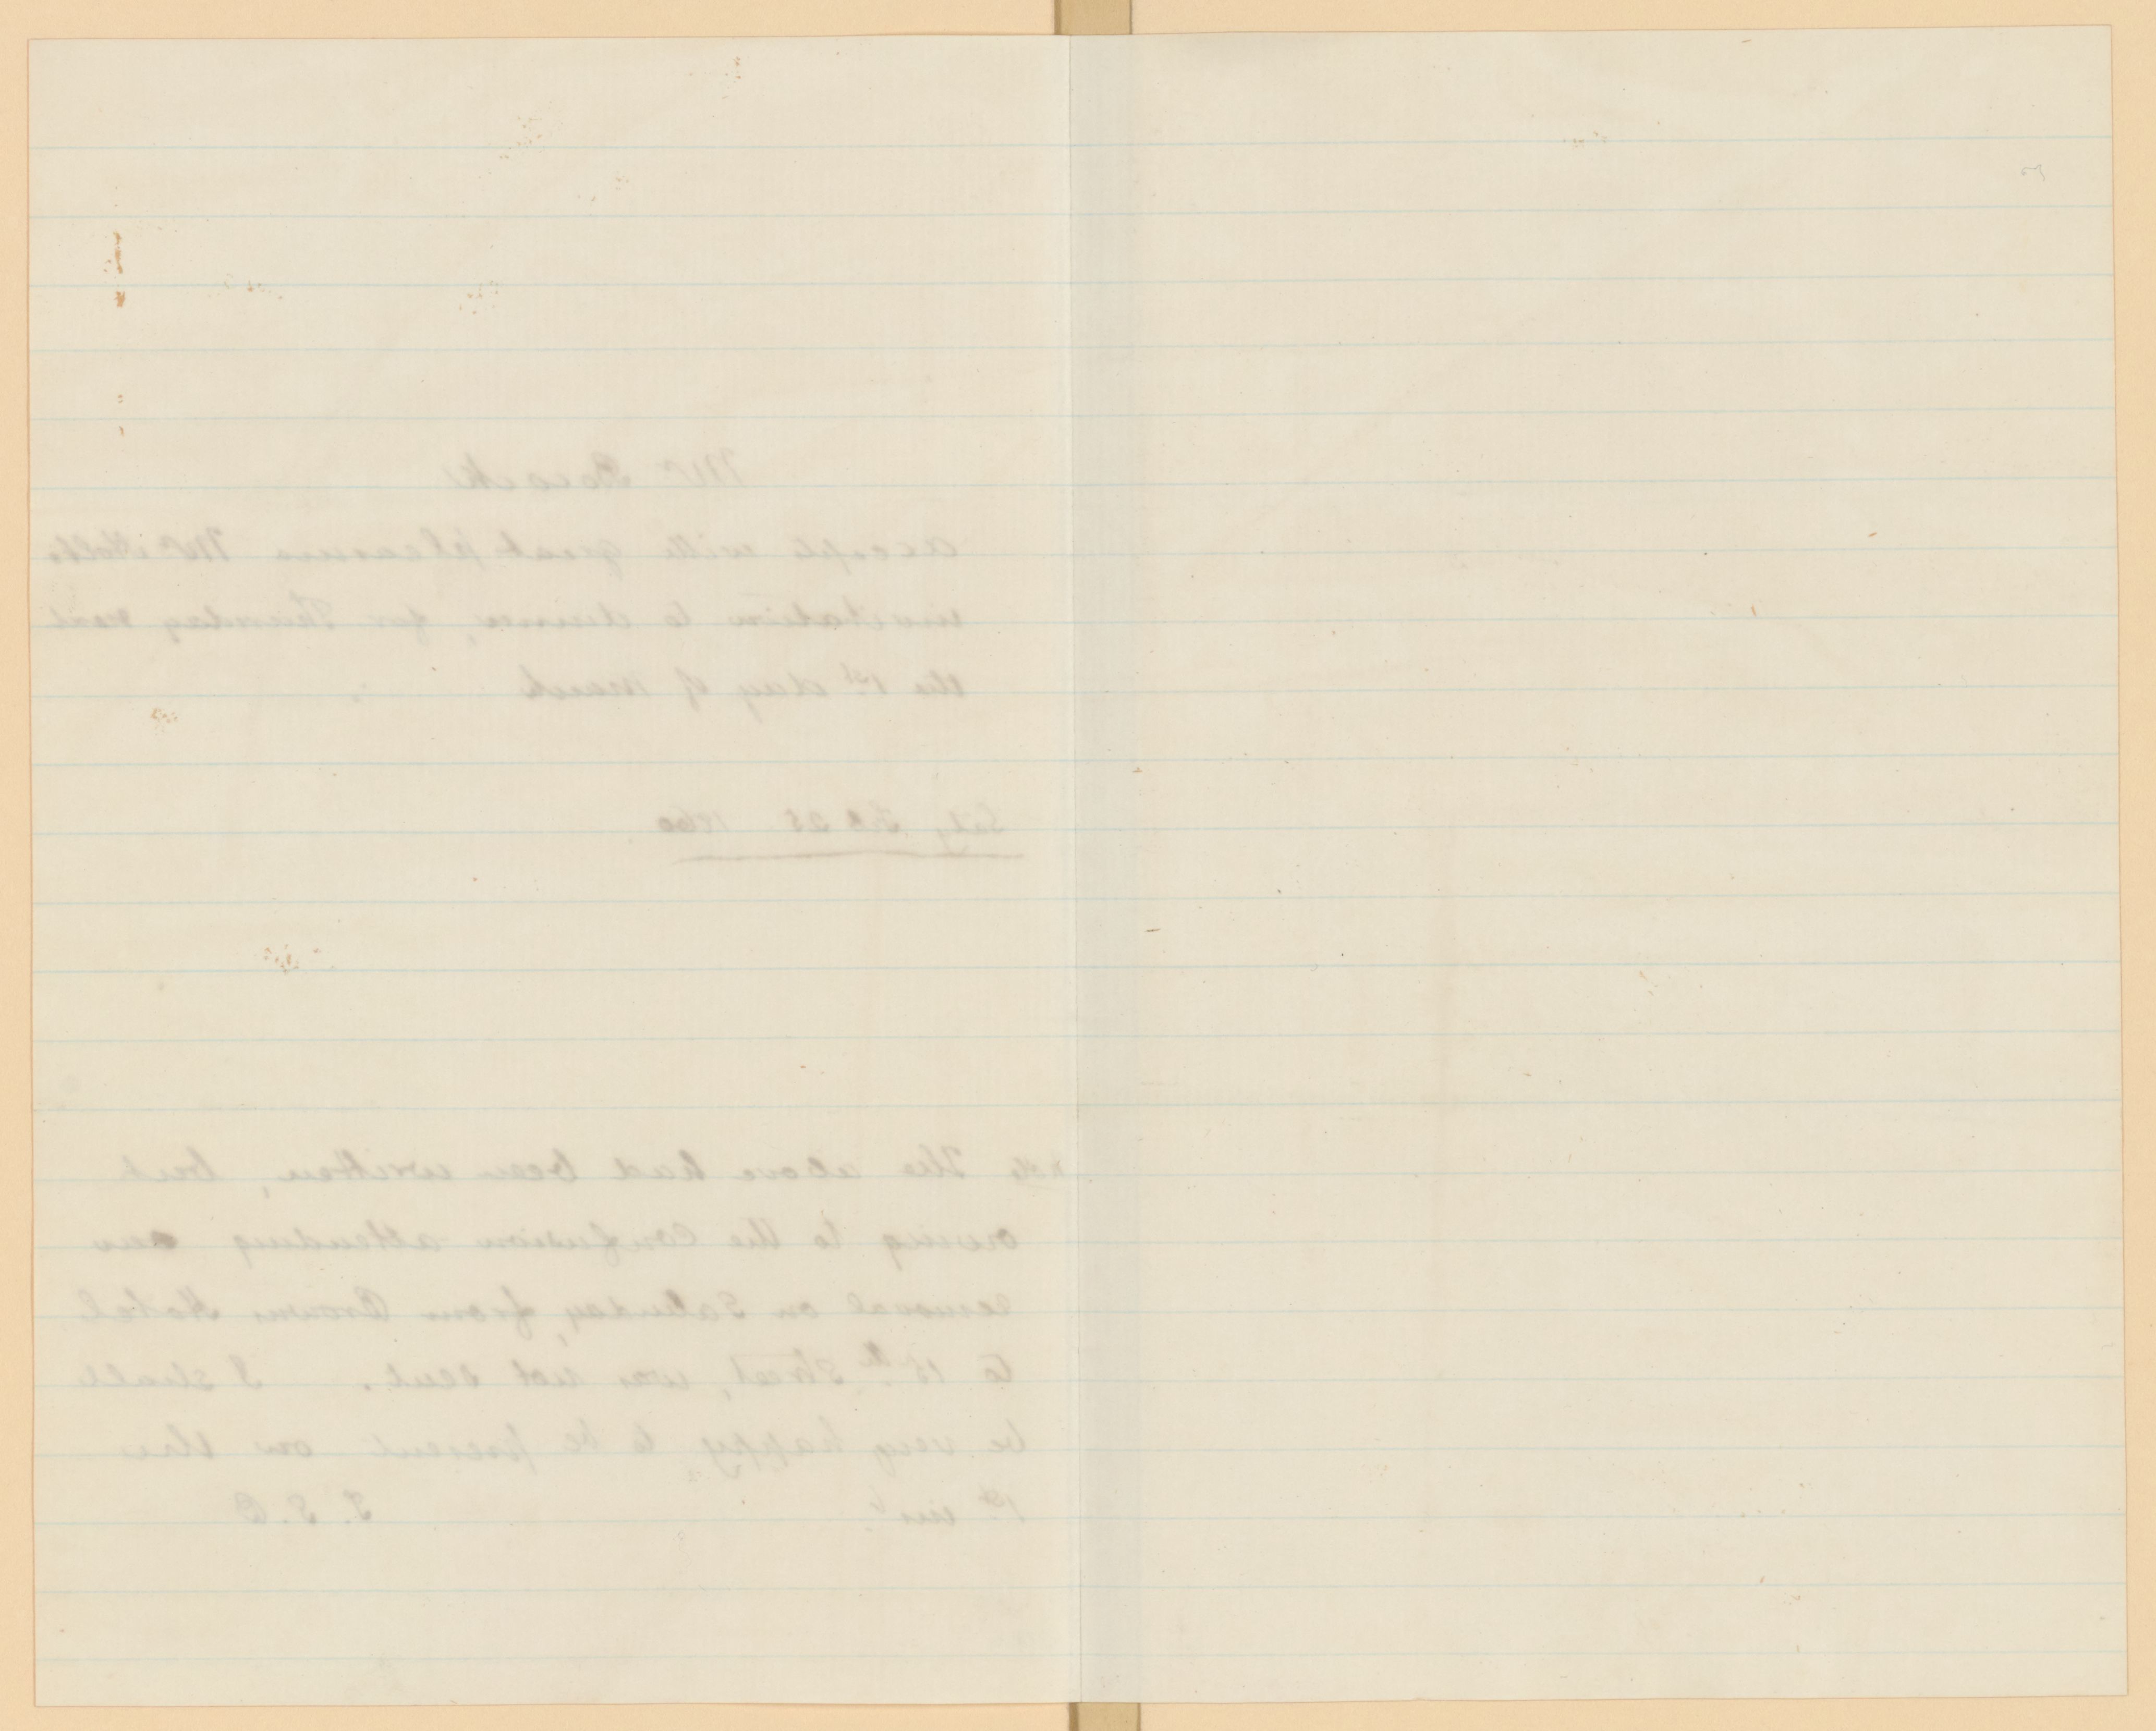 Mr
accepts with great pleasure Mr Holts
invitation to dinner, for Thursday next
the 1st day of March
Saty Feb 25 1860
Note The above had been written, but
owing to the confusion attending our
removal on Saturday, from Browns Hotel
to 15th Street, was not sent. I shall
be very happy to be present on the
1st inst.